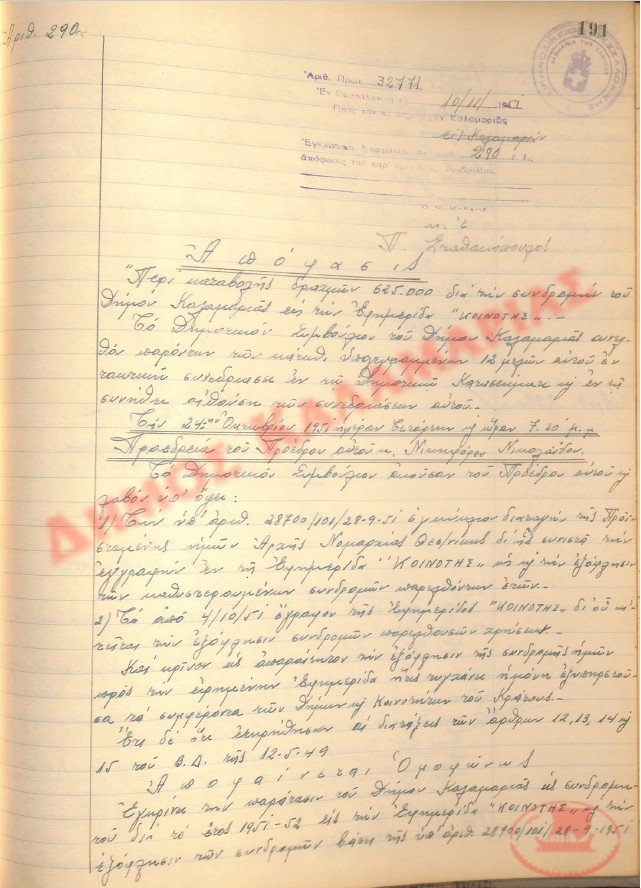 Ἀριθ. 290
191
Ἀριθ. Πρωτ. 32771
Ἐν Θεσσαλονίκῃ τῇ 10/11/ 1951
Πρὸς τὸν κ. Δήμαρχον Καλαμαριᾶς
εἰς Καλαμαριάν
290
Π. Σταθακόπουλος
Ἀ π ό φ α σ ι ς
"Περὶ καταβολῆς δραχμῶν 625.000 διὰ τὴν συνδρομὴν τοῦ
Δήμου Καλαμαριᾶς εἰς τὴν Ἐφημερίδα "ΚΟΙΝΟΤΗΣ„.-
Τὸ Δημοτικὸν Συμβούλιον τοῦ Δήμου Καλαμαριᾶς συνελ-
θὸν παρόντων τῶν κάτωθι ὑπογεγραμμένων 12 μελῶν αὐτοῦ ἐν
τακτικῇ συνεδριάσει ἐν τῷ Δημοτικῷ Καταστήματι κ ἐν τῇ
συνήθει αἰθούσῃ τῶν συνεδριάσεων αὐτοῦ.-
Τὴν 24ην Ὀκτωβρίου 1951 ἡμέραν Τετάρτην κ ὥραν 7.30 μ.μ
Προεδρείᾳ τοῦ Προέδρου αὐτοῦ κ. Νικηφόρου Νικολαΐδου.
Τὸ Δημοτικὸν Συμβούλιον ἀκοῦσαν τοῦ Προέδρου αὐτοῦ κ
λαβὸν ὑπ' ὄψει:
1) Τὴν ὑπ' ἀριθ. 28700/101/28-9-51 ἐγκύκλιον διαταγὴν τῆς Προϊ-
σταμένης ἡμῶν Ἀρχῆς Νομαρχίας Θεσ/νίκης δι' ἧς συνιστᾷ τὴν
ἐγγραφὴν ἐν τῇ Ἐφημερίδι "ΚΟΙΝΟΤΗΣ„ ὡς κ τὴν ἐξόφλησιν
τῶν καθυστερουμένων συνδρομῶν παρελθόντων ἐτῶν.-
2) Τὸ ἀπὸ 4/10/51 ἔγγραφον τῆς Ἐφημερίδος "ΚΟΙΝΟΤΗΣ„ δι' οὗ αἰ-
τεῖται τὴν ἐξόφλησιν συνδρομῶν παρελθουσῶν χρήσεων.-
Καὶ κρῖνον ὡς ἀπαραίτητον τὴν ἐξόφλησιν τῆς συνδρομῆς ἡμῶν
πρὸς τὴν εἰρημένην Ἐφημερίδα ἥτις τυγχάνει ἡ μόνη ἐξυπηρετοῦ-
σα τὰ συμφέροντα τῶν Δήμων κ Κοινοτήτων τοῦ Κράτους.-
Ἔτι δὲ ὅτι ἐτηρήθησαν αἱ διατάξεις τῶν ἄρθρων 12, 13, 14 κ
15 τοῦ Β.Δ. τῆς 12-5-49
Ἀ π ο φ α ί ν ε τ α ι Ὁ μ ο φ ώ ν ω ς
Ἐγκρίνει τὴν παράτασιν τοῦ Δήμου Καλαμαριᾶς ὡς συνδρομη-
τοῦ διὰ τὸ ἔτος 1951-52 εἰς τὴν Ἐφημερίδα "ΚΟΙΝΟΤΗΣ„ κ τὴν
ἐξόφλησιν τῶν συνδρομῶν βάσει τῆς ὑπ' ἀριθ. 28700/101/28-9-1951
ΔΗΜΟΣ ΚΑΛΑΜΑΡΙΑΣ